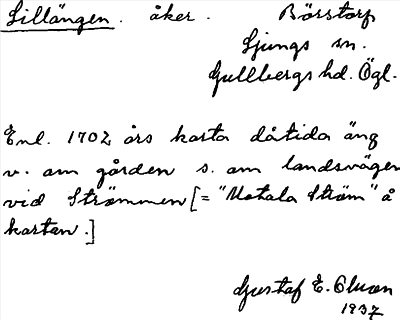 Lillängen. åker. Börstorp
Ljungs sn.
Gullbergs hd. Ögl.
Enl. 1702 års karta dåtida äng
v. om gården s. om landsvägen
vid Strömmen [= "Motala Ström" å
kartan.]
Gustaf E. Olson
1937